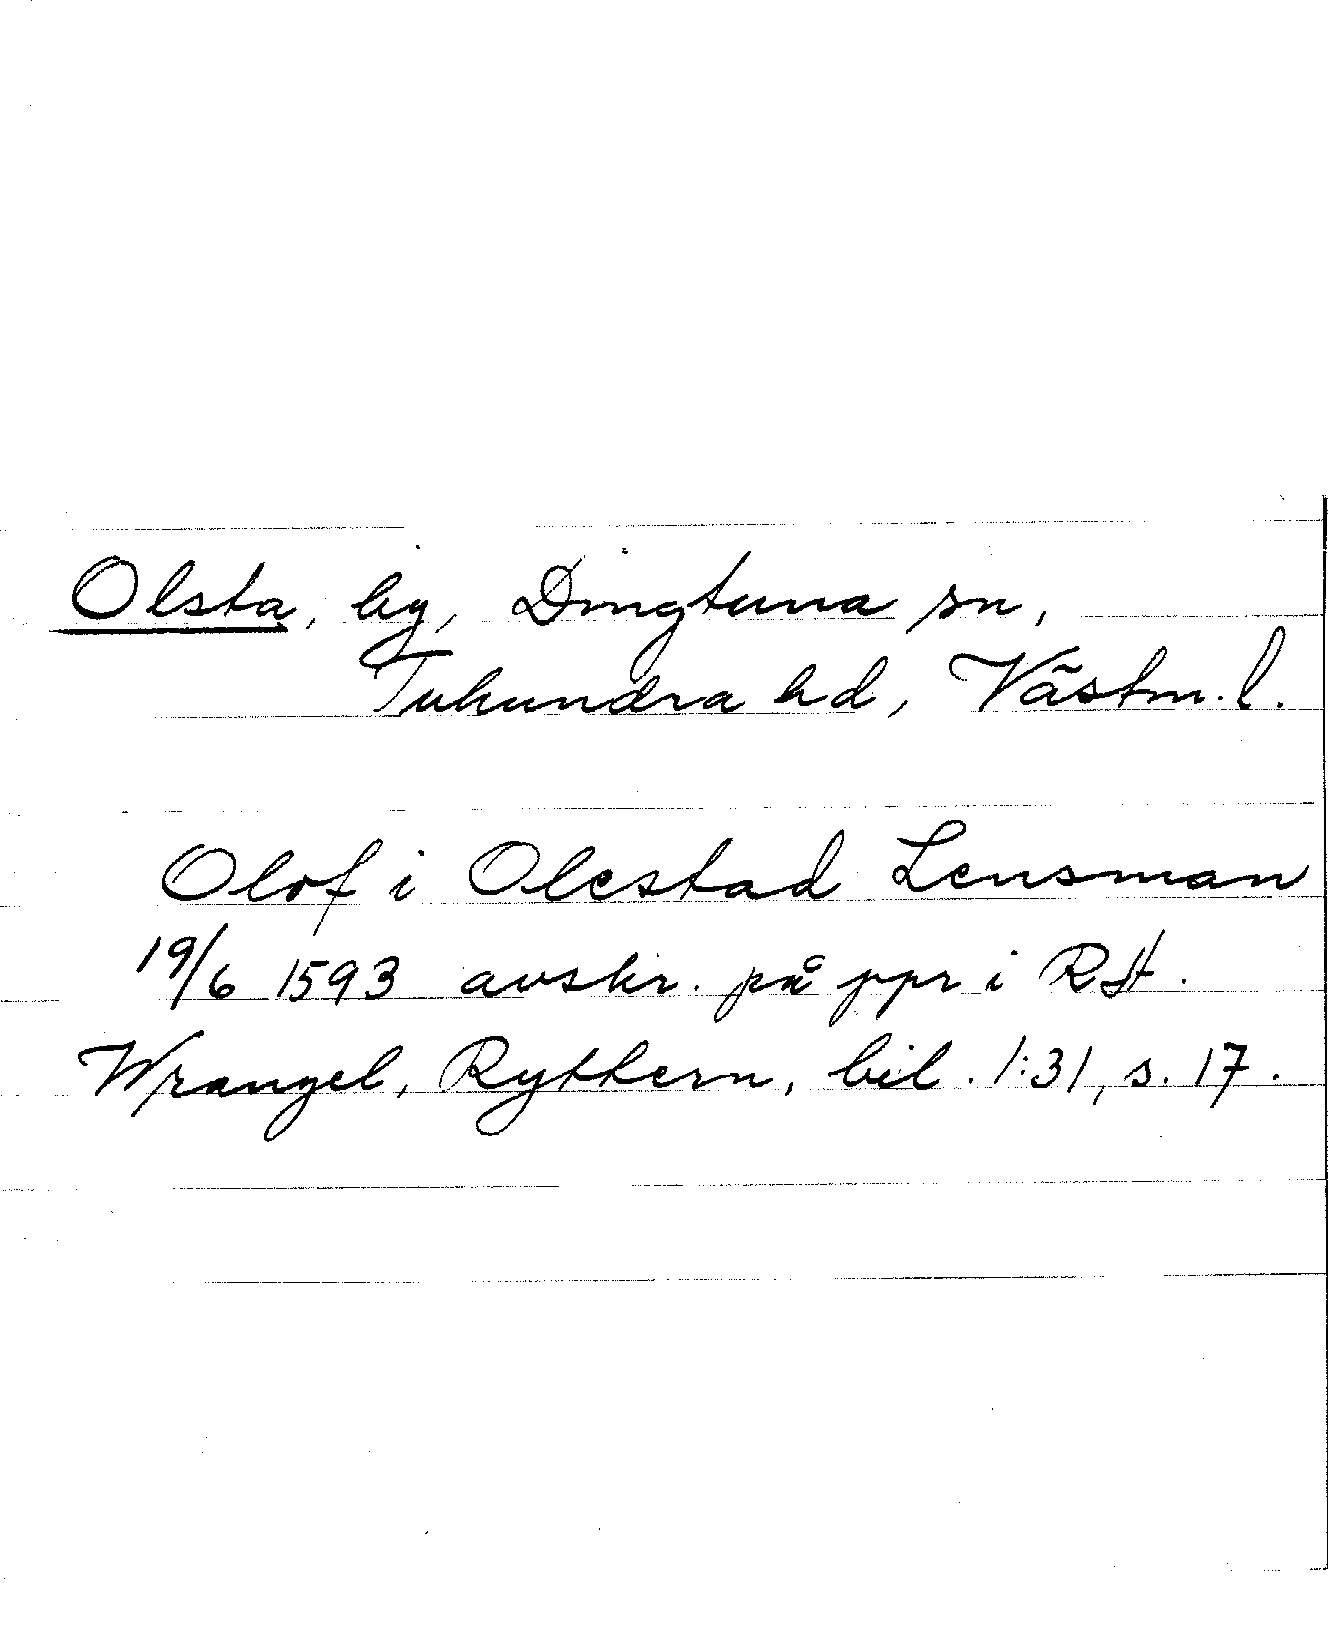 Olsta, by, Dingtuna sn,
Tuhundra hd, Västm. l.
Olof i Olestad Lensman
19/6 1593 avskr. på ppr i RA.
Wrangel, Rythern, bil. 1:31, s. 17.